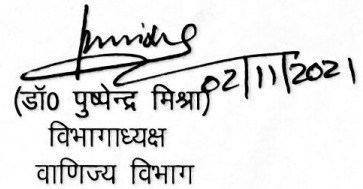 02/11/2021
(डॉ0 पुष्पेन्द्र मिश्रा)
विभागाध्यक्ष
वाणिज्य विभाग